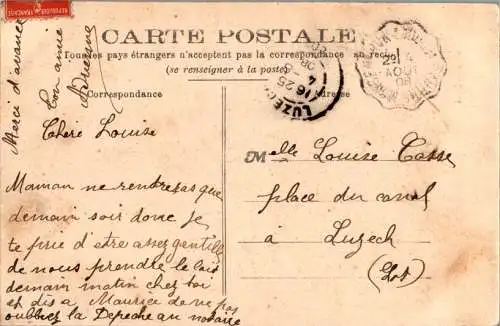 REPUBLIQUE FRANÇAISE
CARTE POSTALE
Tous les pays étrangers n'acceptent pas la correspondance au recto
(se renseigner à la poste)
Correspondance
Adresse
LUZECH
16 25
Merci d'avance
Ton amie
Chère Louise
Maman ne rentreras que
demain soir donc je
te prie d'etre assez gentille
de nous prendre le lait
demain matin chez toi
et dis a Maurice de ne pas
oublier la Depeche au notaire
Melle Louise Casse
place du canal
à Luzech
(Lot)